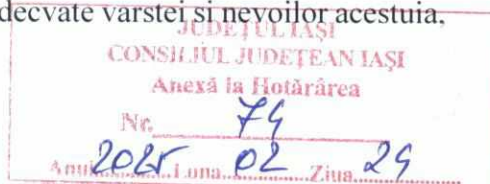 decvate varstei si nevoilor acestuia,
JUDEŢUL IAŞI
CONSILIUL JUDEŢEAN IAŞI
Anexă la Hotărârea
Nr. 74
Anul 2025 Luna 02 Ziua 24